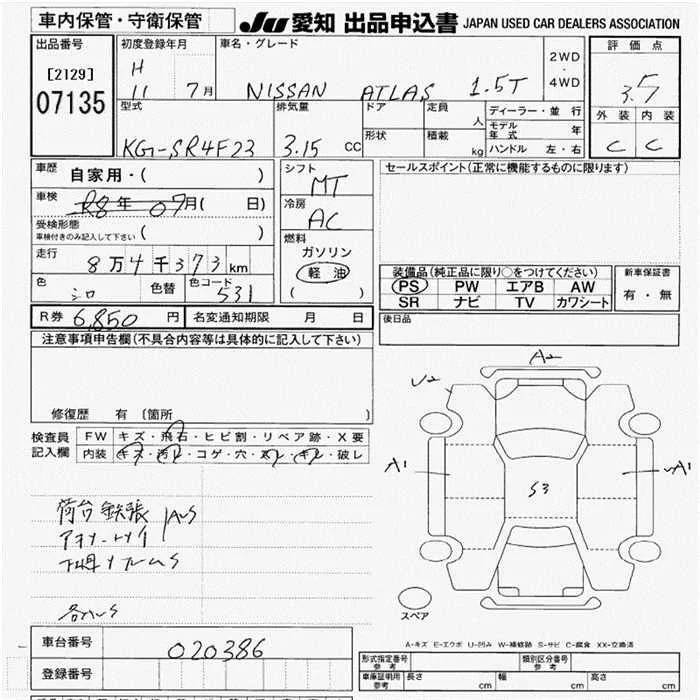 車内保管・守衛保管
JU 愛知 出品申込書 JAPAN USED CAR DEALERS ASSOCIATION
出品番号
[2129]
07135
初度登録年月
H
11 7月
車名・グレード
NISSAN ATLAS 1.5T
2WD
・
4WD
評価点
3.5
外装 内装
C C
型式
KG-SR4F23
排気量
3.15 CC
ドア
定員
人
形状
積載
kg
ディーラー・並行
モデル年式 年
ハンドル 左・右
車歴
自家用・( )
車検
R8年 07月( 日)
受検形態
車検付きのみ記入して下さい ( )
走行
8万4千373km
色
シロ
色替
色コード
531
シフト
MT
冷房
AC
燃料
ガソリン
軽油
( )
セールスポイント(正常に機能するものに限ります)
装備品(純正品に限り○をつけてください)
PS PW エアB AW
SR ナビ TV カワシート
新車保証書
有・無
R券 6,850 円
名変通知期限 月 日
後日品
注意事項申告欄(不具合内容等は具体的に記入して下さい)
修復歴 有 〔箇所 〕
検査員
記入欄
FW キズ・飛石・ヒビ割・リペア跡・X要
内装 キズ・汚レ・コゲ・穴・スレ・キレ・破レ
荷台鉄張
下廻サフレームS
A2
U2
A1
A1
S3
スペア
A-キズ E-エクボ U-凹み W-補修跡 S-サビ C-腐食 XX-交換済
車台番号
020386
登録番号
形式指定番号
参考
類別区分番号
参考
車庫証明用
参考
長さ cm
幅 cm
高さ cm